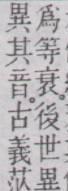 爲等衰。後世異
異其音。古義茫